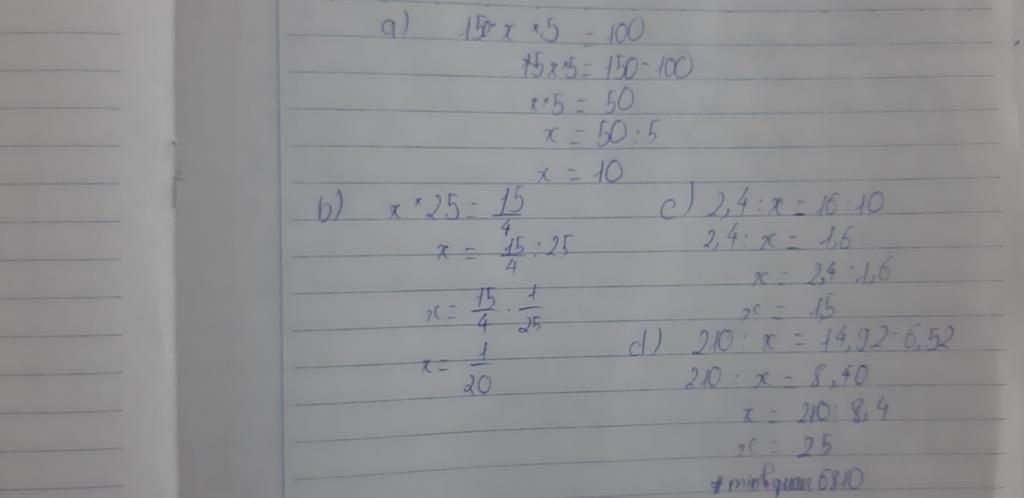 a) 150 - x × 5 = 100
x × 5 = 150 - 100
x × 5 = 50
x = 50 : 5
x = 10
b) x × 25 = 15/4
x = 15/4 : 25
x = 15/4 . 1/25
x = 1/20
c) 2,4 : x = 16 : 10
2,4 : x = 1,6
x = 2,4 : 1,6
x = 15
d) 210 : x = 14,92 - 6,52
210 : x = 8,40
x = 210 : 8,4
x = 25